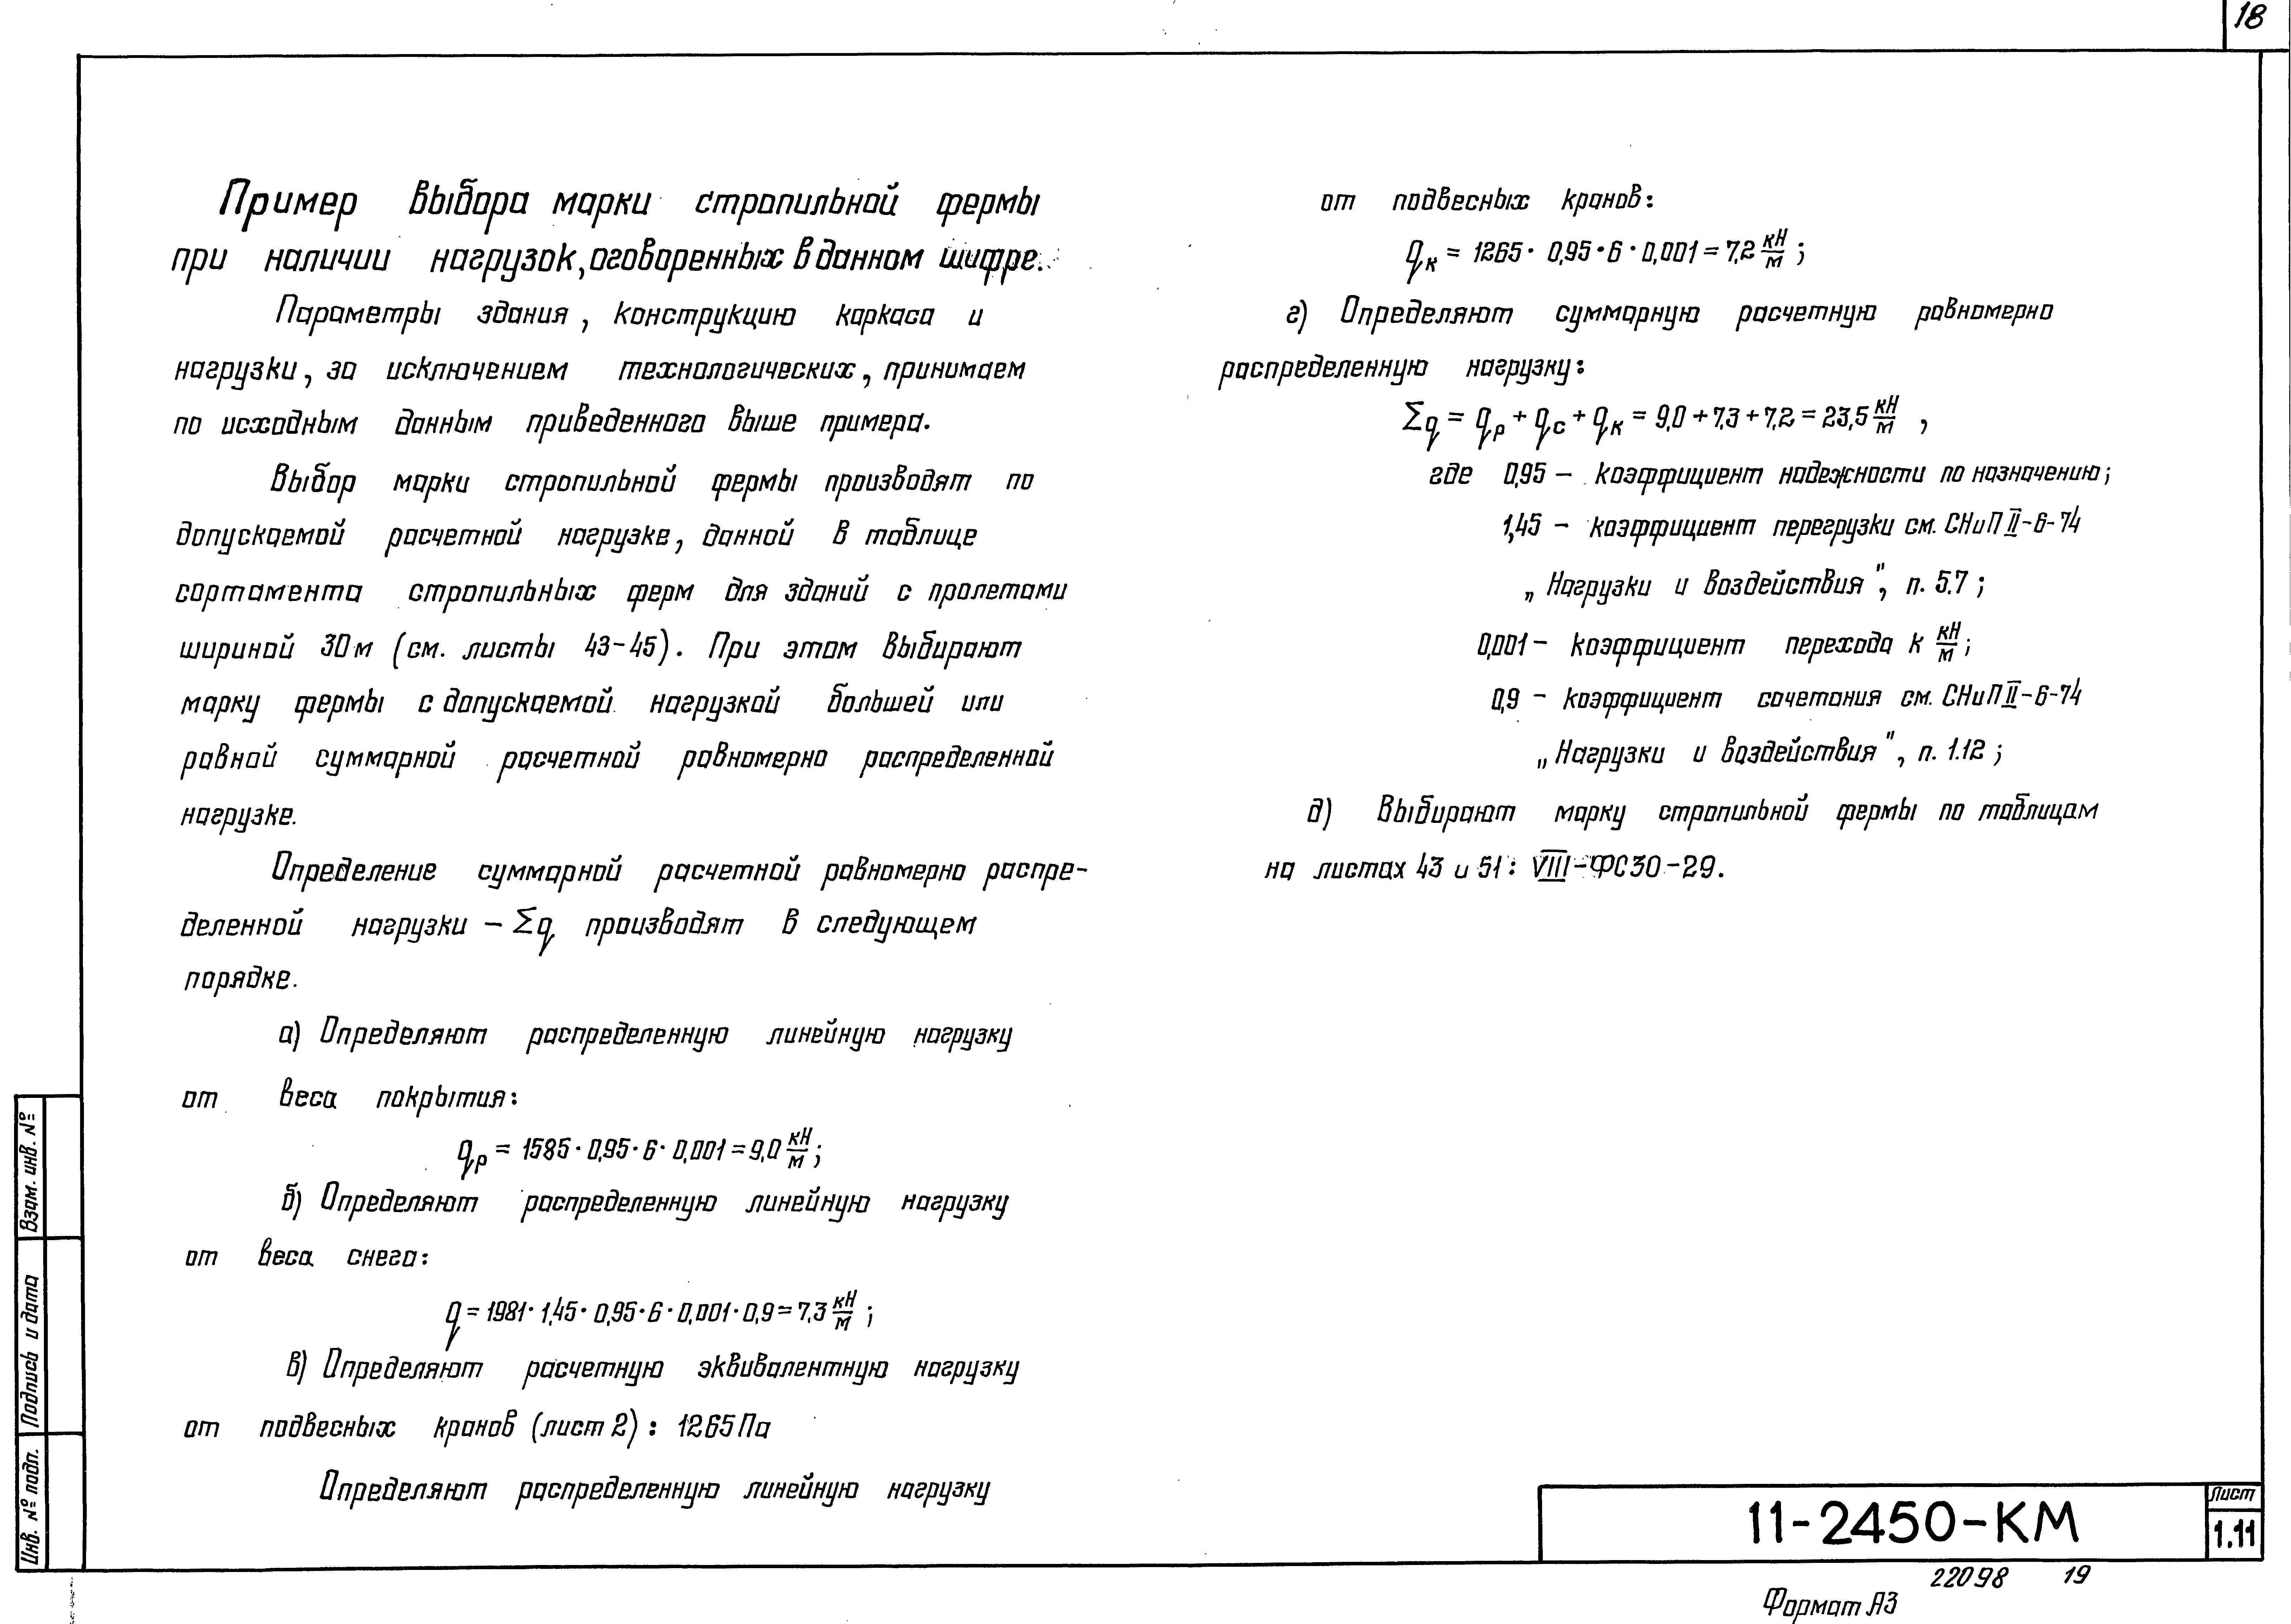 18
Пример выбора марки стропильной фермы
при наличии нагрузок, оговоренных в данном шифре.
Параметры здания, конструкцию каркаса и
нагрузки, за исключением технологических, принимаем
по исходным данным приведенного выше примера.
Выбор марки стропильной фермы производят по
допускаемой расчетной нагрузке, данной в таблице
сортамента стропильных ферм для зданий с пролетами
шириной 30м (см. листы 43-45). При этом выбирают
марку фермы с допускаемой нагрузкой большей или
равной суммарной расчетной равномерно распределенной
нагрузке.
Определение суммарной расчетной равномерно распре-
деленной нагрузки – Σq производят в следующем
порядке.
а) Определяют распределенную линейную нагрузку
от веса покрытия:
qр = 1585·0,95·6·0,001=9,0 кН/м;
б) Определяют распределенную линейную нагрузку
от веса снега:
q=1981·1,45·0,95·6·0,001·0,9=7,3 кН/м;
в) Определяют расчетную эквивалентную нагрузку
от подвесных кранов (лист 2): 1265 Па
Определяют распределенную линейную нагрузку
от подвесных кранов:
qк = 1265·0,95·6·0,001=7,2 кН/м;
г) Определяют суммарную расчетную равномерно
распределенную нагрузку:
Σq = qр + qс + qк = 9,0+7,3+7,2=23,5 кН/м,
где 0,95 – коэффициент надежности по назначению;
1,45 – коэффициент перегрузки см. СНиП II-6-74
„Нагрузки и воздействия", п. 5.7;
0,001 – коэффициент перехода к кН/м;
0,9 – коэффициент сочетания см. СНиП II-6-74
„Нагрузки и воздействия", п. 1.12;
д) Выбирают марку стропильной фермы по таблицам
на листах 43 и 51: VIII-ФС30-29.
Взам. инв. №
Подпись и дата
Инв. № подл.
11-2450-КМ
Лист
1.11
22098 19
Формат А3